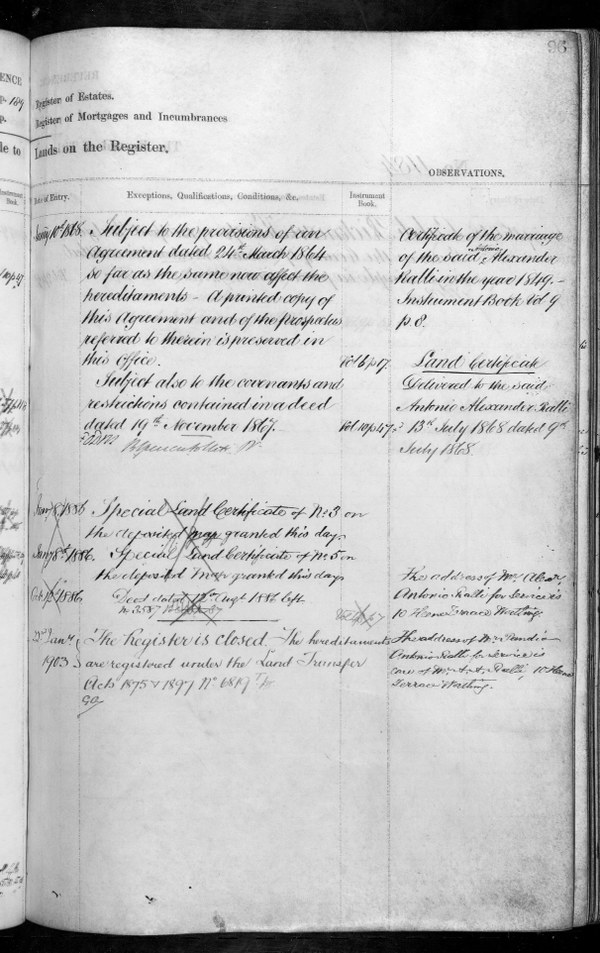 96
Register of Estates.
Register of Mortgages and Incumbrances
Lands on the Register.
OBSERVATIONS.
Date of Entry.
Exceptions, Qualifications, Conditions, &c.
Instrument Book.
Subject to the provisions of an
Agreement dated 24th March 1864
so far as the same now affect the
hereditaments – A printed copy of
this Agreement and of the Prospectus
referred to therein is preserved in
this Office.
Vol 6 p 17.
Subject also to the covenants and
restrictions contained in a deed
dated 19th November 1867.
Vol 10 p 47
Special Land Certificate of No 3 on
the deposited map granted this day
Jany 8th 1886.
Special Land Certificate of No 5 on
the deposited map granted this day
1886.
Deed dated 12th Augt 1886 left
22d Jany 1903
The Register is closed. The hereditaments
are registered under the Land Transfer
Acts 1875 & 1897 No 6819
Certificate of the marriage
of the said Antonio Alexander
Ralli in the year 1849. –
Instrument Book Vol 9
p. 8.
Land Certificate
Delivered to the said
Antonio Alexander Ralli
13th July 1868 dated 9th
July 1868.
The address of Mr Alexr
Antonio Ralli for service is
10 Terrace Worthing.
The address of Mr
Antonio Ralli for service is
care of Mr A. A. Ralli, 10
Terrace Worthing.